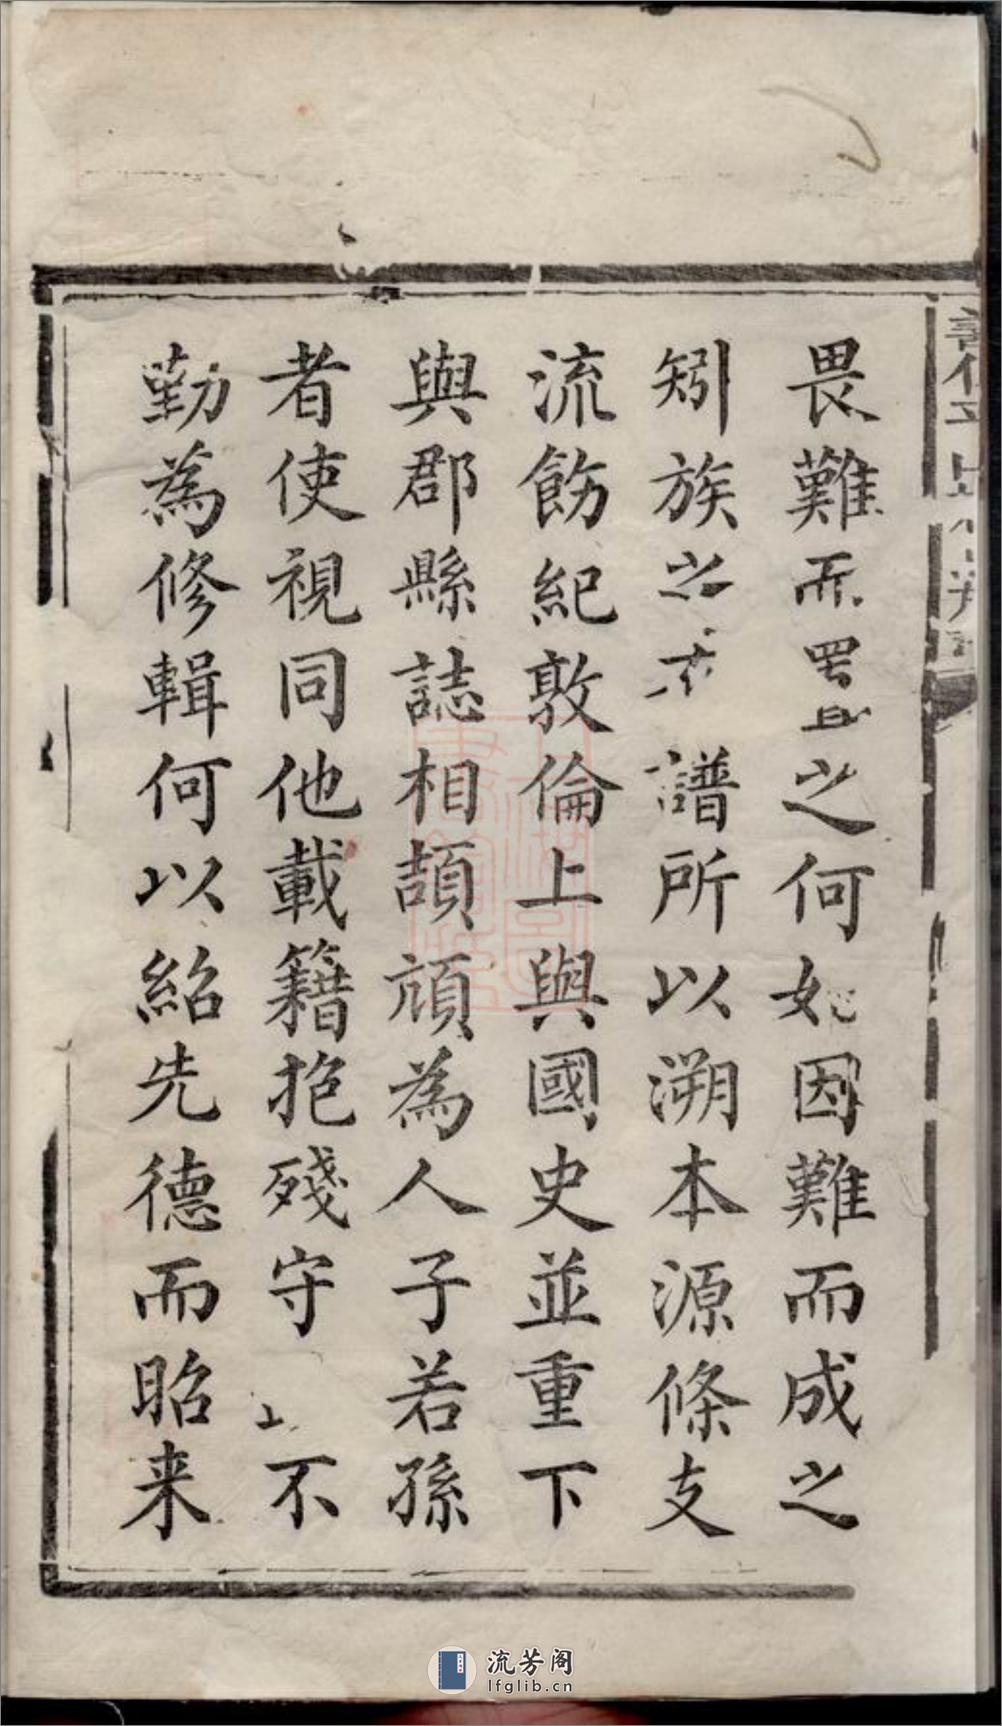 畏難而置之何如因難而成之
矧族之有譜所以溯本源條支
流飭紀敦倫上與國史並重下
與郡縣誌相頡頏為人子若孫
者使視同他載籍抱殘守不
勤為修輯何以紹先德而昭来
流芳阁
lfglib.cn